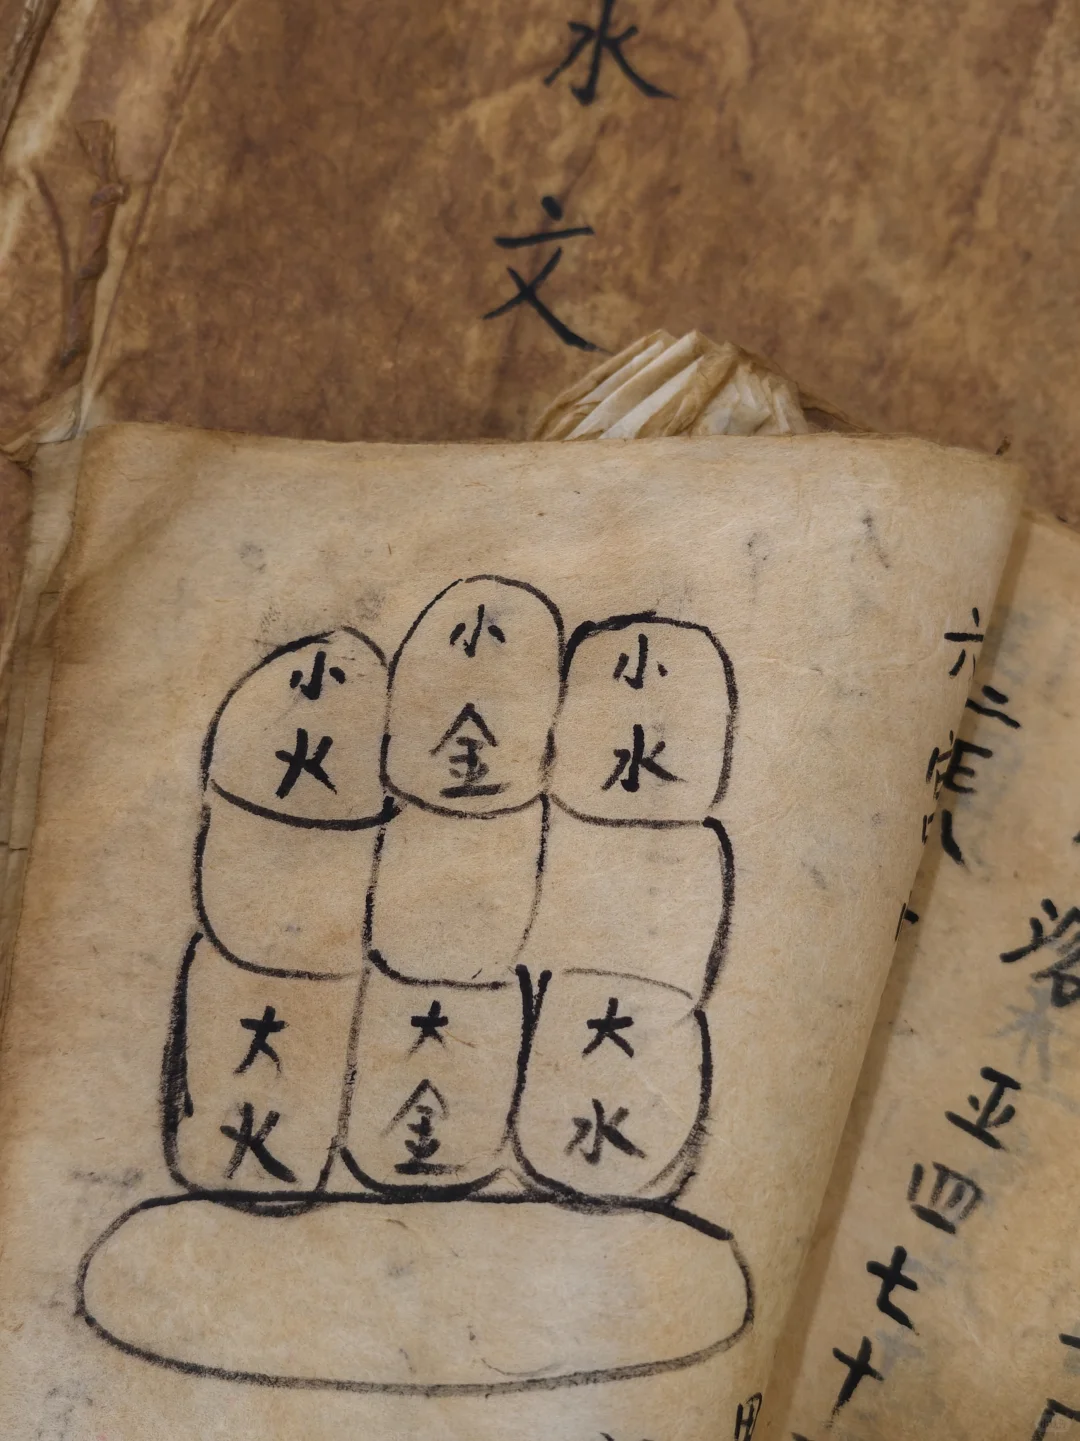 水文
小火
小金
小水
大火
大金
大水
六二
落亚四七十